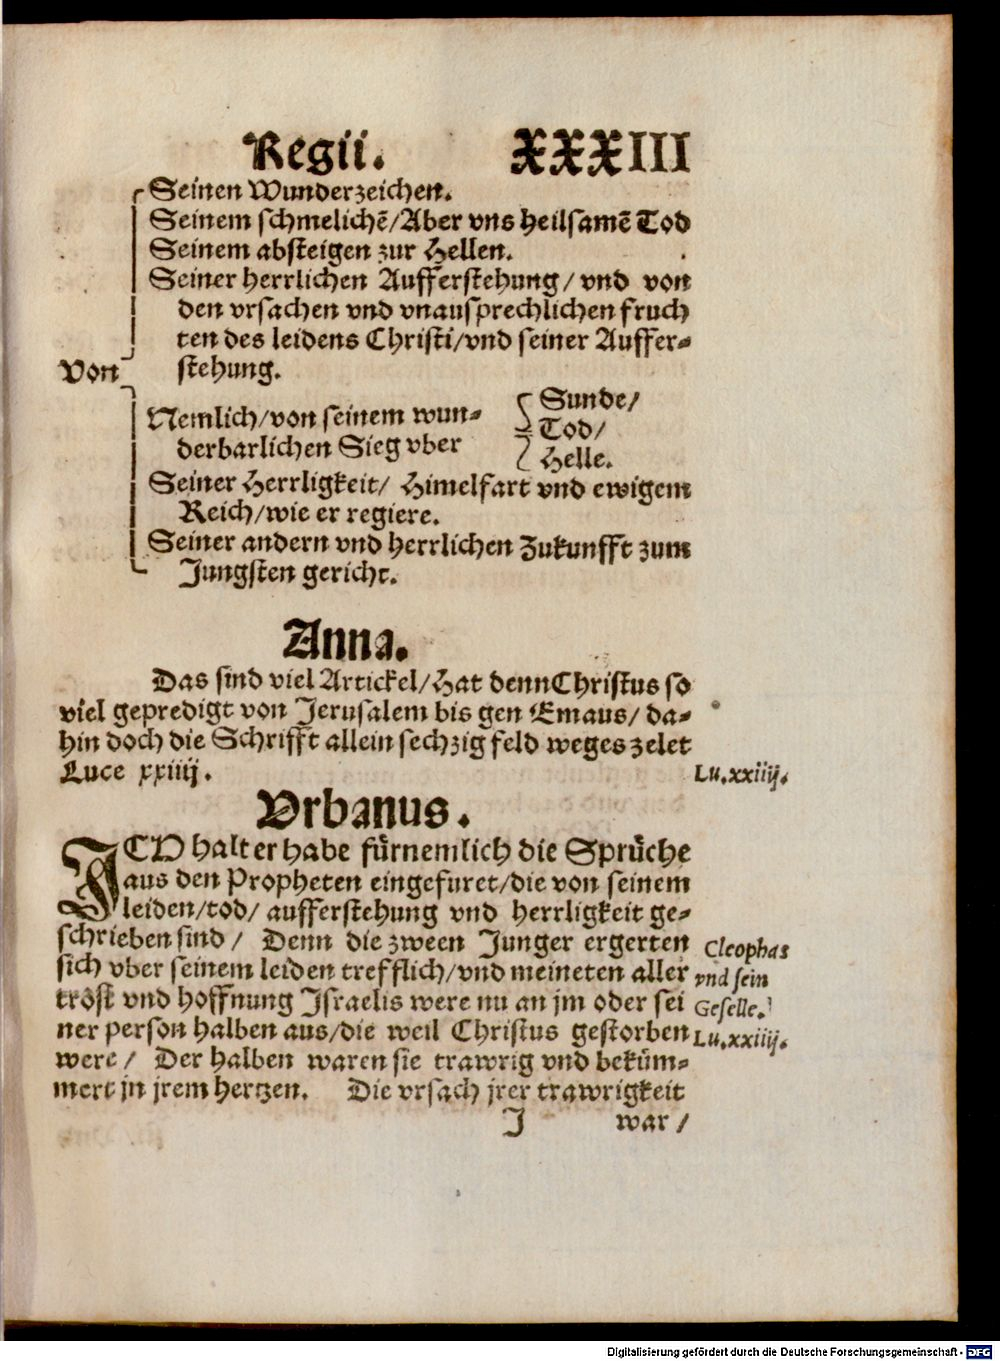 Regii. XXXIII
Seinen Wunderzeichen.
Seinem schmelichẽ/Aber vns heilsamẽ Tod
Seinem absteigen zur Hellen.
Seiner herrlichen Aufferstehung/ vnd von
den vrsachen vnd vnausprechlichen fruch
ten des leidens Christi/vnd seiner Auffer-
Von stehung.
Nemlich/von seinem wun-
derbarlichen Sieg vber
Sunde/
Tod/
Helle.
Seiner Herrligkeit/ Himelfart vnd ewigem
Reich/wie er regiere.
Seiner andern vnd herrlichen Zukunfft zum
Jungsten gericht.
Anna.
Das sind viel Artickel/Hat denn Christus so
viel gepredigt von Jerusalem bis gen Emaus/ da-
hin doch die Schrifft allein sechzig feld weges zelet
Luce xxiiij.
Lu.xxiiij.
Vrbanus.
JCH halt er habe fürnemlich die Sprüche
aus den Propheten eingefuret/die von seinem
leiden/tod/ aufferstehung vnd herrligkeit ge-
schrieben sind/ Denn die zween Junger ergerten
sich vber seinem leiden trefflich/vnd meineten aller
tröst vnd hoffnung Israelis were nu an jm oder sei
ner person halben aus/die weil Christus gestorben
were/ Der halben waren sie trawrig vnd beküm-
mert jn jrem hertzen. Die vrsach jrer trawrigkeit
Cleophas
vnd sein
Geselle.
Lu.xxiiij.
J war/
Digitalisierung gefördert durch die Deutsche Forschungsgemeinschaft - DFG